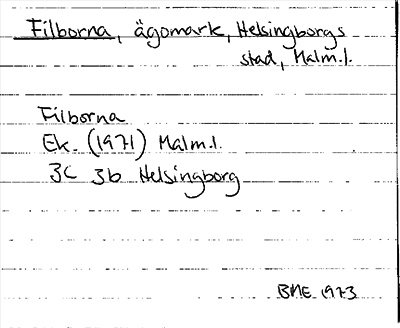 Filborna, ägomark, Helsingborgs
stad, Malm.l.
Filborna
Ek. (1971) Malm.l.
3C 3b Helsingborg
BME 1973